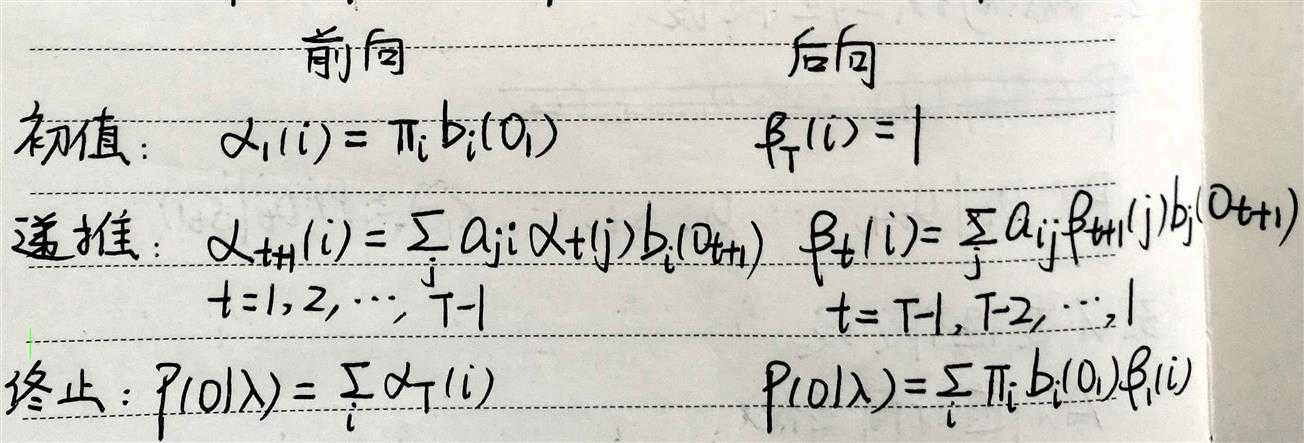 前向 后向
初值: α₁(i) = πᵢbᵢ(O₁) β_T(i) = 1
递推: α_{t+1}(i) = Σ_j a_{ji} α_t(j) b_i(O_{t+1}) β_t(i) = Σ_j a_{ij} β_{t+1}(j) b_j(O_{t+1})
t=1, 2, ⋯, T-1 t= T-1, T-2, ⋯, 1
终止: P(O|λ) = Σ_i α_T(i) P(O|λ) = Σ_i π_i b_i(O₁) β₁(i)